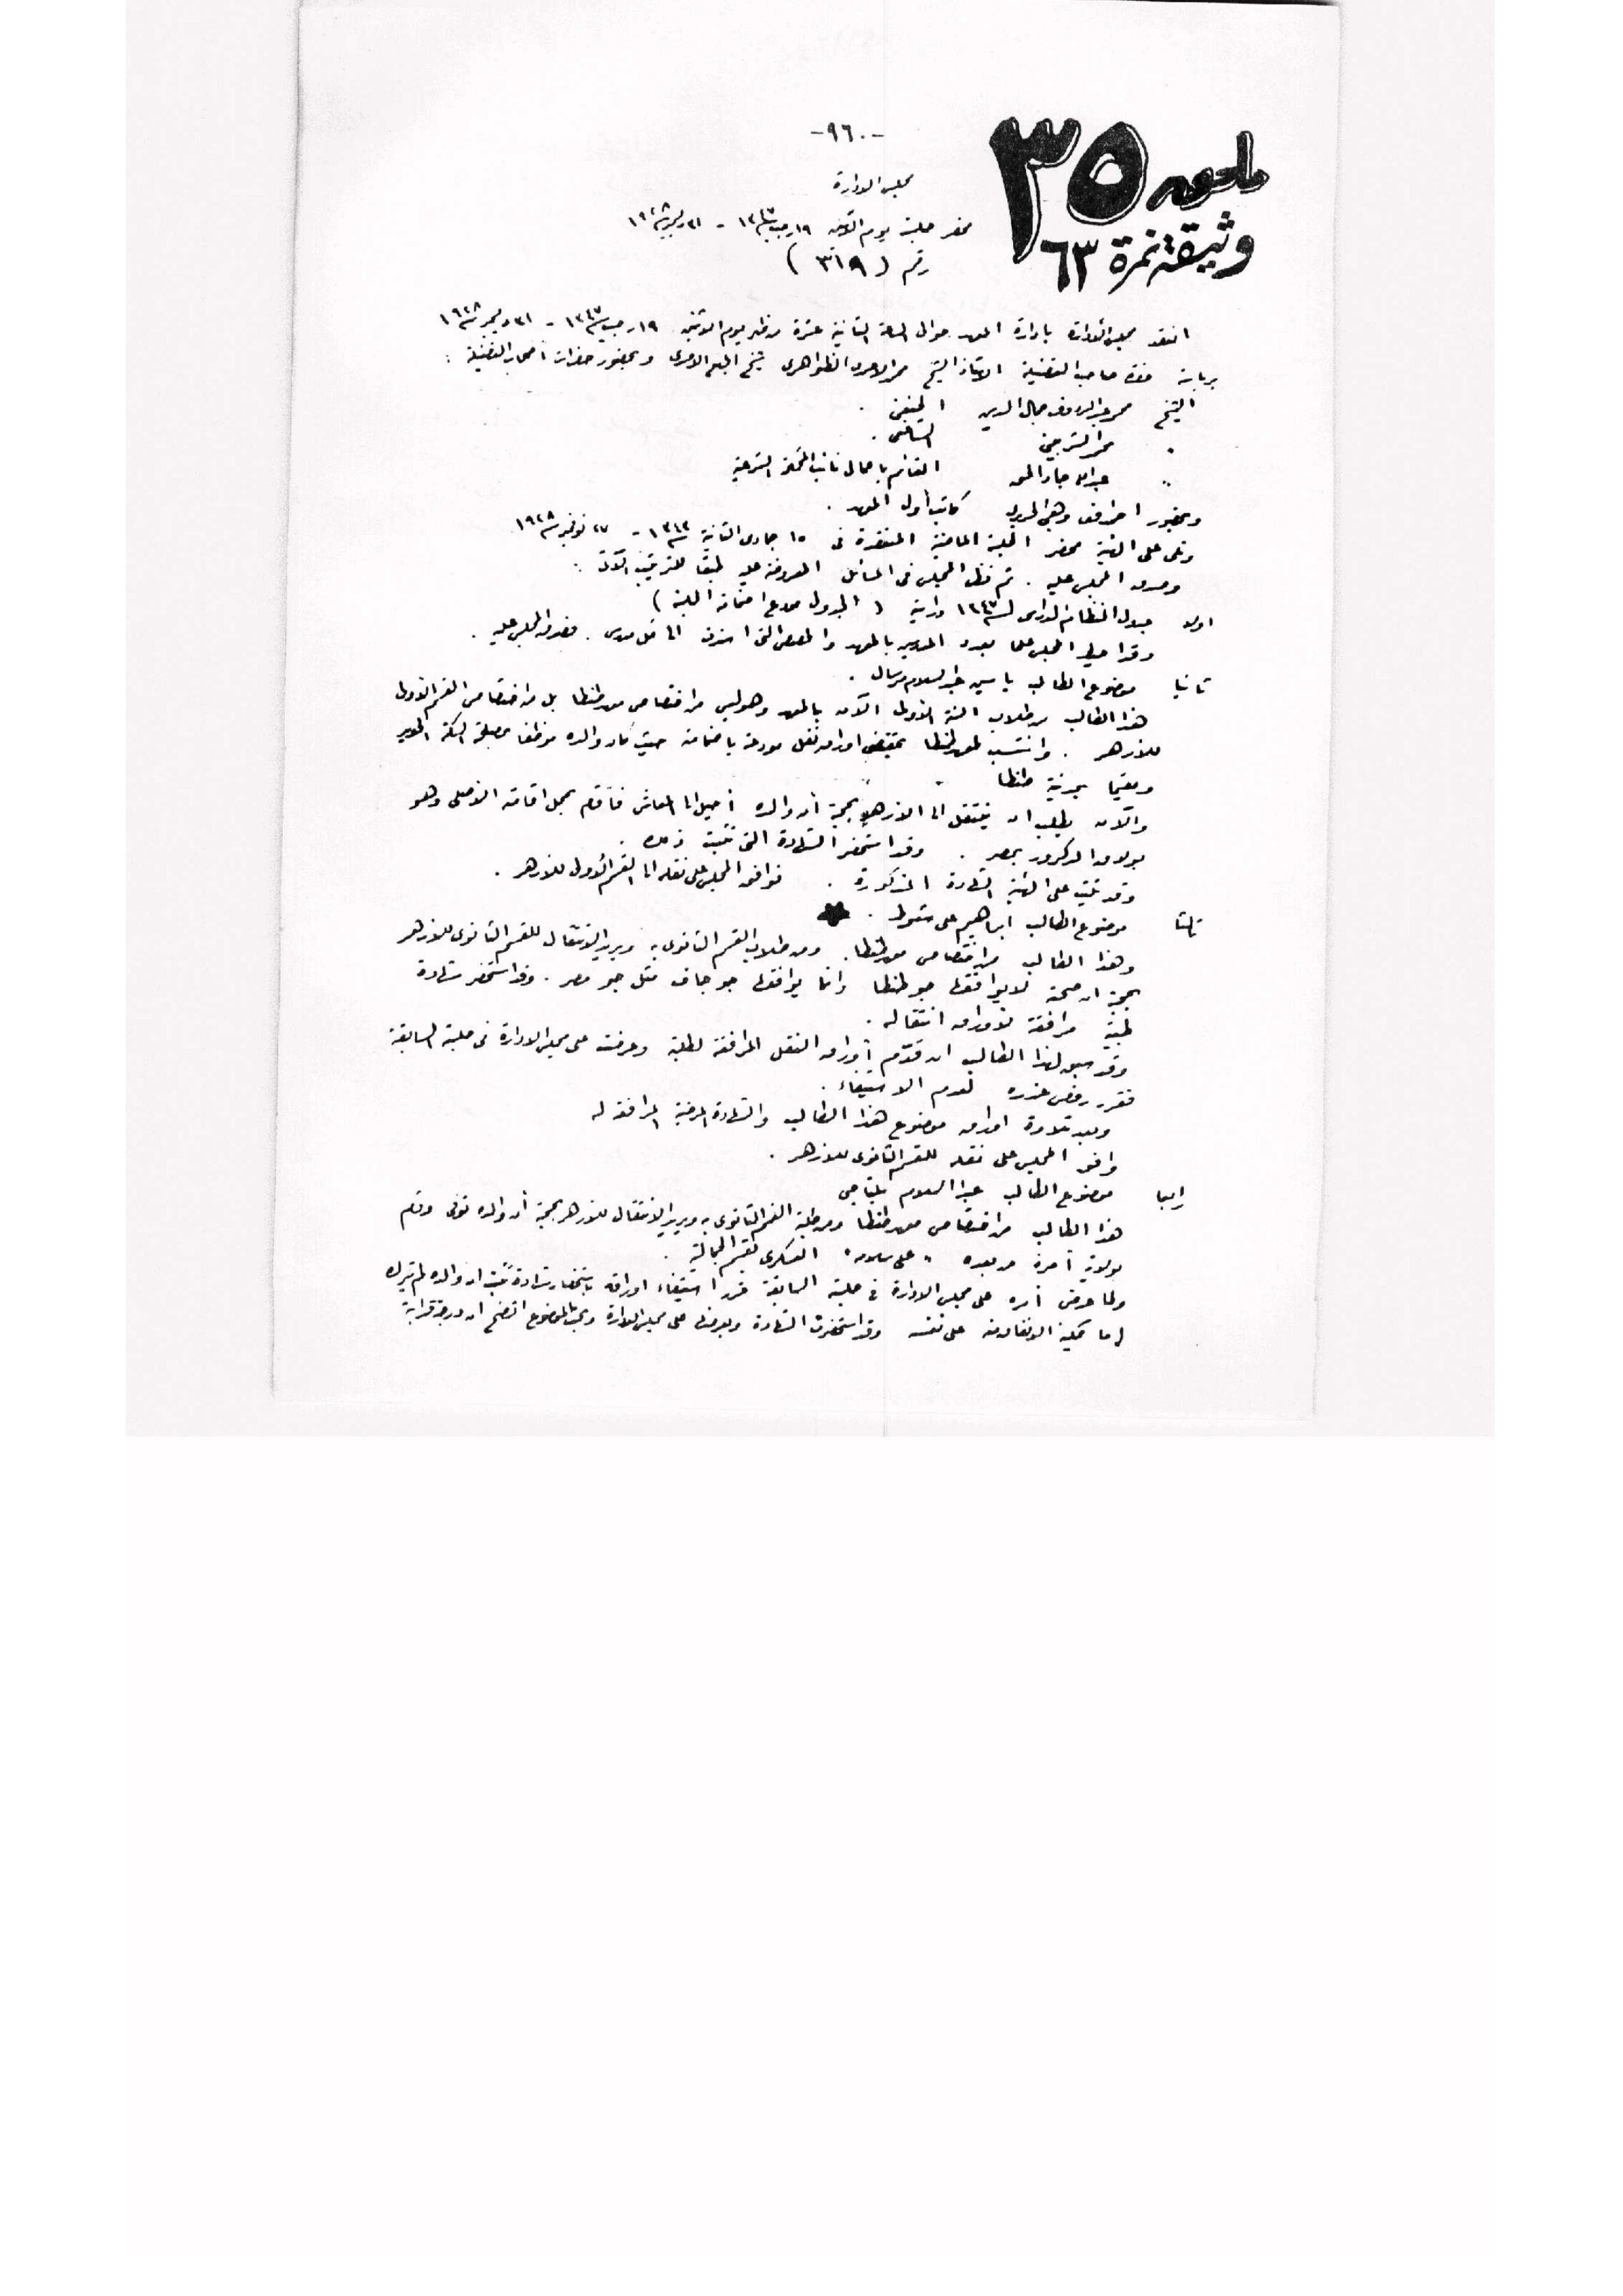 -٩٦٠-
ملحق ٣٥
وثيقة نمرة ٦٣
مجلس الادارة
محضر جلسة يوم الاثنين ١٩ رجب سنة ١٣٤٧ - ٣١ ديسمبر سنة ١٩٢٨
رقم ( ٣١٩ )
انعقد مجلس الادارة بادارة المعهد حوالى الساعة الثانية عشرة من ظهر يوم الاثنين ١٩ رجب سنة ١٣٤٧ - ٣١ ديسمبر سنة ١٩٢٨
برياسة حضرة صاحب الفضيلة الاستاذ الشيخ محمد الاحمدى الظواهرى شيخ الجامع الاحمدى وبحضور حضرات أصحاب الفضيلة :
الشيخ محمد عبد الرؤوف جمال الدين الحنفى .
" محمد الشربينى الشافعى .
" عبد الله جاد الحق القائم باعمال نائب المحكمة الشرعية
وبحضور احمد فؤاد وهبى كاتب أول المعهد .
وتلى على الهيئة محضر الجلسة الماضية المنعقدة فى ١٥ جمادى الثانية سنة - ٢٧ نوفمبر سنة ١٩٢٨
وصدق المجلس عليه . ثم نظر المجلس فى المسائل المعروضة عليه طبقا للترتيب الآتى :
اولا جدول النظام الدراسى لسنة ١٣٤٧ دراسية ( الجدول مودع اضمامة الجلسة )
وقد احيط المجلس علما بعدد المدرسين بالمعهد والحصص التى اسندت الى كل مدرس . فصدق المجلس عليه .
ثانيا موضوع الطالب ياسين عبد السلام مرسال .
هذا الطالب من طلاب السنة الأولى الآن بالمعهد وهو ليس من اختصاص معهد طنطا بل من اختصاص القسم الأولى
للازهر . وانتسب لمعهد طنطا بمقتضى اوراق نقل مودعة باضمامة حيث كان والده موظفا بمصلحة السكة الحديد
ومقيما بمدينة طنطا
والآن يطلب ان ينتقل الى الازهر بحجة أن والده أحيل الى المعاش فأقام بمحل اقامته الاصلى وهو
بولاق الدكرور بمصر . وقد استحضر الشهادة التى تثبت ذلك .
وقد تليت على الهيئة الشهادة المذكورة . فوافق المجلس على نقله الى القسم الأولى للازهر .
ثالثا موضوع الطالب ابراهيم على .
وهذا الطالب من اختصاص معهد طنطا . ومن طلاب القسم الثانوى به ويريد الانتقال للقسم الثانوى للازهر
بحجة ان صحته لا يوافقها جو طنطا وانما يوافقها جو جاف مثل جو مصر . وقد استحضر شهادة
طبية مرافقة لاوراق انتقاله .
وقد سبق لهذا الطالب ان قدم أوراق النقل المرافقة لطلبه وعرضت على مجلس الادارة فى جلسته السابقة
فقرر رفض عذره لعدم الاستيفاء .
وبعد تلاوة اوراق موضوع هذا الطالب والشهادة المرضية المرافقة له
وافق المجلس على نقله للقسم الثانوى للازهر .
رابعا موضوع الطالب عبد السلام بلتاجى
هذا الطالب من اختصاص معهد طنطا ومن طلبة القسم الثانوى به ويريد الانتقال للازهر بحجة أن والده توفى وقام
بولاية أمره من بعده "على سلامه" العسكرى بقسم الجمالية .
ولما عرض أمره على مجلس الادارة فى جلسته السابقة قرر استيفاء اوراقه باستحضار شهادة تثبت ان والده لم يترك
له ما يمكنه الانفاق منه على نفسه وقد استحضرت الشهادة وبعرضها على مجلس الادارة وبحث الموضوع اتضح ان درجة قرابة